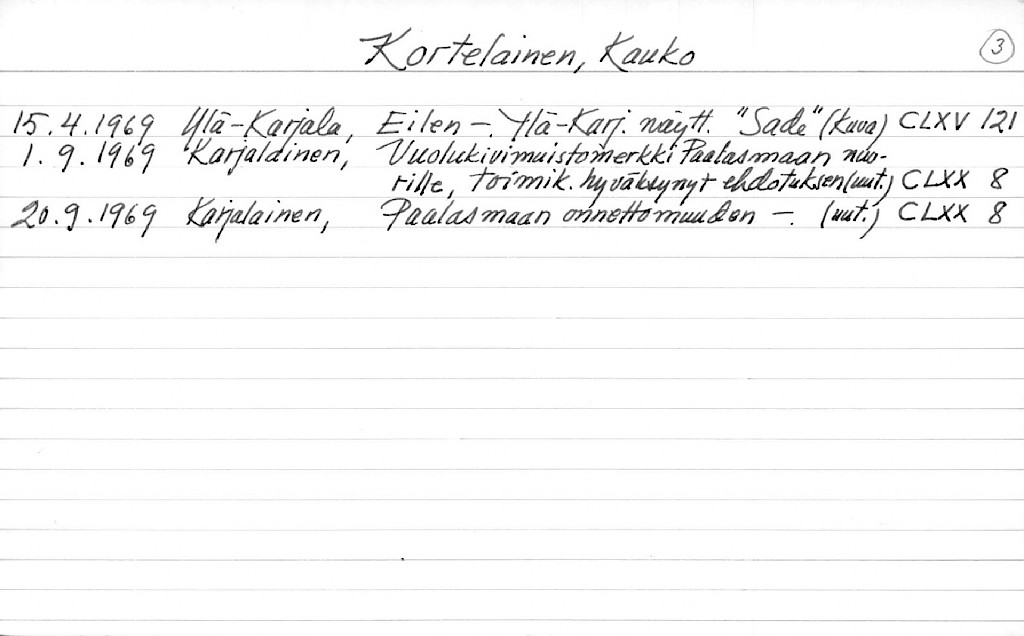 Kortelainen, Kauko 3
15.4.1969 Ylä-Karjala, Eilen –. Ylä-Karj. näytt. "Sade" (kuva) CLXV 121
1.9.1969 Karjalainen, Vuolukivimuistomerkki Paalasmaan nuo-
rille, toimik. hyväksynyt ehdotuksen (uut.) CLXX 8
20.9.1969 Karjalainen, Paalasmaan onnettomuuden –. (uut.) CLXX 8